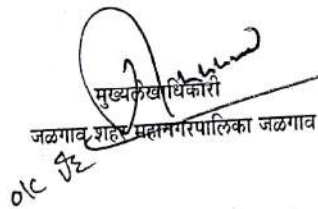 मुख्यलेखाधिकारी
जळगाव शहर महानगरपालिका जळगाव
o/c